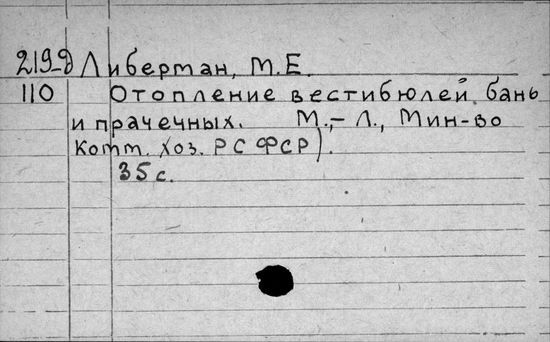 219-д Либерман, М.Е.
110 Отопление вестибюлей бань
и прачечных. М.,-Л., Мин-во
Комм. хоз. РСФСР).
35 с.